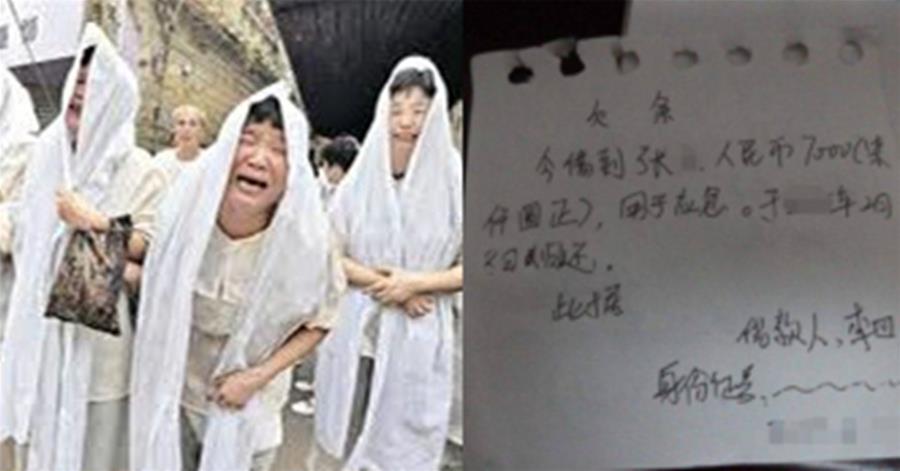 欠条
今借到张 人民币7000(柒
仟圆正),用于应急。于 年2月
日归还。
此据
借款人:李四
身份证号: